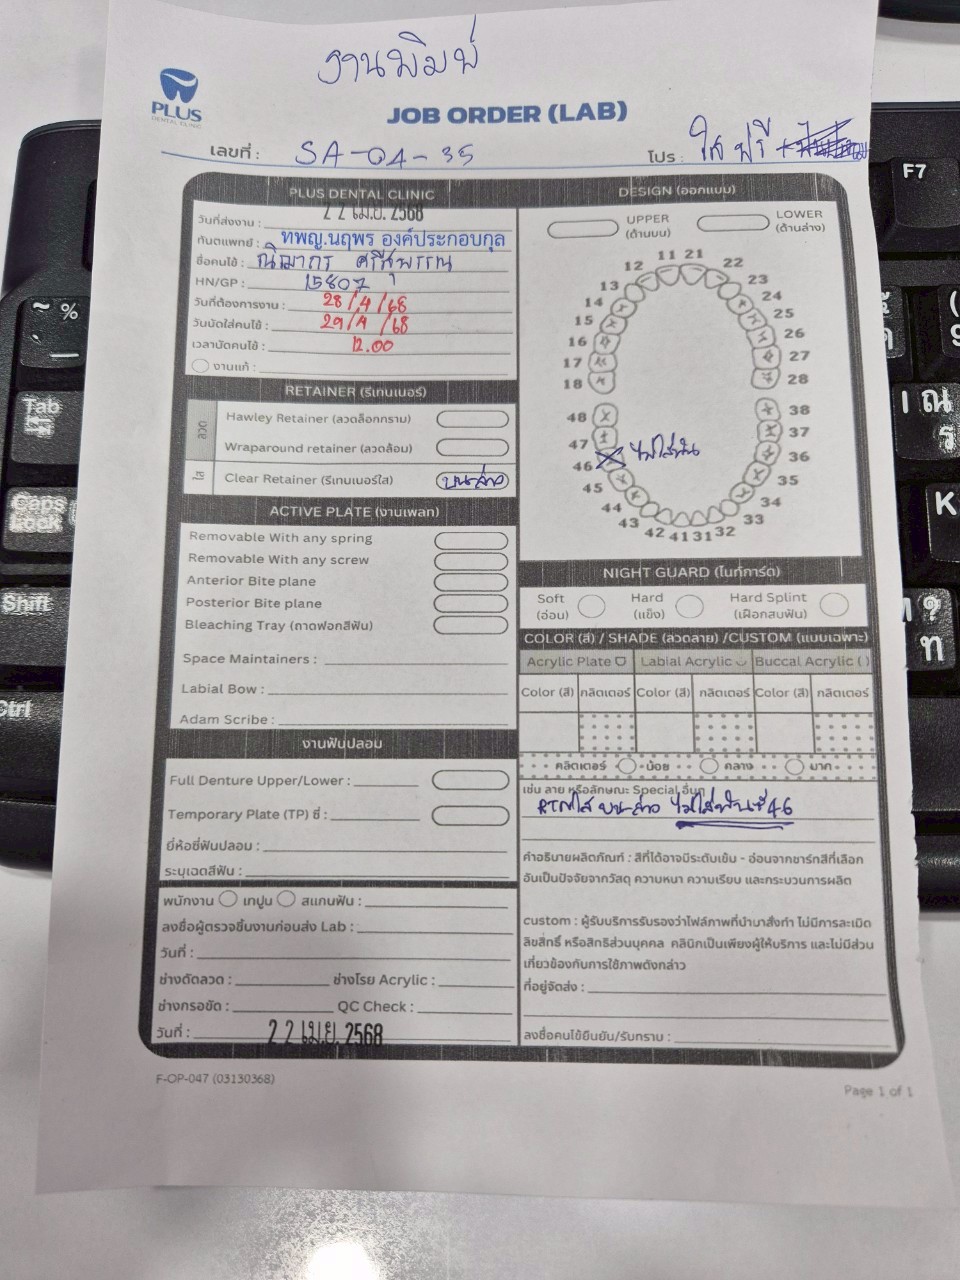 งานพิมพ์
PLUS
DENTAL CLINIC
JOB ORDER (LAB)
เลขที่ : SA-04-35
โปร : ใส ฟรี
PLUS DENTAL CLINIC
วันที่ส่งงาน : 22 เม.ย. 2568
ทันตแพทย์ : ทพญ.นฤพร องค์ประกอบกุล
ชื่อคนไข้ : ณิฌากร ศรีสุพรรณ
HN/GP : 15807
วันที่ต้องการงาน : 28/4/68
วันนัดใส่คนไข้ : 29/4/68
เวลานัดคนไข้ : 12.00
งานแก้ :
RETAINER (รีเทนเนอร์)
ลวด
Hawley Retainer (ลวดล็อกกราม)
Wraparound retainer (ลวดล้อม)
ใส
Clear Retainer (รีเทนเนอร์ใส) บน-ล่าง
ACTIVE PLATE (งานเพลท)
Removable With any spring
Removable With any screw
Anterior Bite plane
Posterior Bite plane
Bleaching Tray (ถาดฟอกสีฟัน)
Space Maintainers :
Labial Bow :
Adam Scribe :
งานฟันปลอม
Full Denture Upper/Lower :
Temporary Plate (TP) ซี่ :
ยี่ห้อซี่ฟันปลอม :
ระบุเฉดสีฟัน :
พนักงาน เทปูน สแกนฟัน :
ลงชื่อผู้ตรวจชิ้นงานก่อนส่ง Lab :
วันที่ :
ช่างดัดลวด : ช่างโรย Acrylic :
ช่างกรอขัด : QC Check :
วันที่ : 22 เม.ย. 2568
DESIGN (ออกแบบ)
UPPER (ด้านบน)
LOWER (ด้านล่าง)
11 21
12 22
13 23
14 24
15 25
16 26
17 27
18 28
48 38
47 37
ไม่ใส่ฟัน
46 36
45 35
44 34
43 33
42 41 31 32
NIGHT GUARD (ไนท์การ์ด)
Soft (อ่อน) Hard (แข็ง) Hard Splint (เฝือกสบฟัน)
COLOR (สี) / SHADE (ลวดลาย) /CUSTOM (แบบเฉพาะ)
Acrylic Plate Labial Acrylic Buccal Acrylic ( )
Color (สี) กลิตเตอร์ Color (สี) กลิตเตอร์ Color (สี) กลิตเตอร์
กลิตเตอร์ น้อย กลาง มาก
เช่น ลาย หรือลักษณะ Special อื่นๆ
RTNใส บน-ล่าง ไม่ใส่ฟันซี่46
คำอธิบายผลิตภัณฑ์ : สีที่ได้อาจมีระดับเข้ม - อ่อนจากชาร์ทสีที่เลือก
อันเป็นปัจจัยจากวัสดุ ความหนา ความเรียบ และกระบวนการผลิต
custom : ผู้รับบริการรับรองว่าไฟล์ภาพที่นำมาสั่งทำ ไม่มีการละเมิด
ลิขสิทธิ์ หรือสิทธิส่วนบุคคล คลินิกเป็นเพียงผู้ให้บริการ และไม่มีส่วน
เกี่ยวข้องกับการใช้ภาพดังกล่าว
ที่อยู่จัดส่ง :
ลงชื่อคนไข้ยืนยัน/รับทราบ :
F-OP-047 (03130368)
Page 1 of 1
F7
Tab
Caps Lock
Shift
Ctrl
K